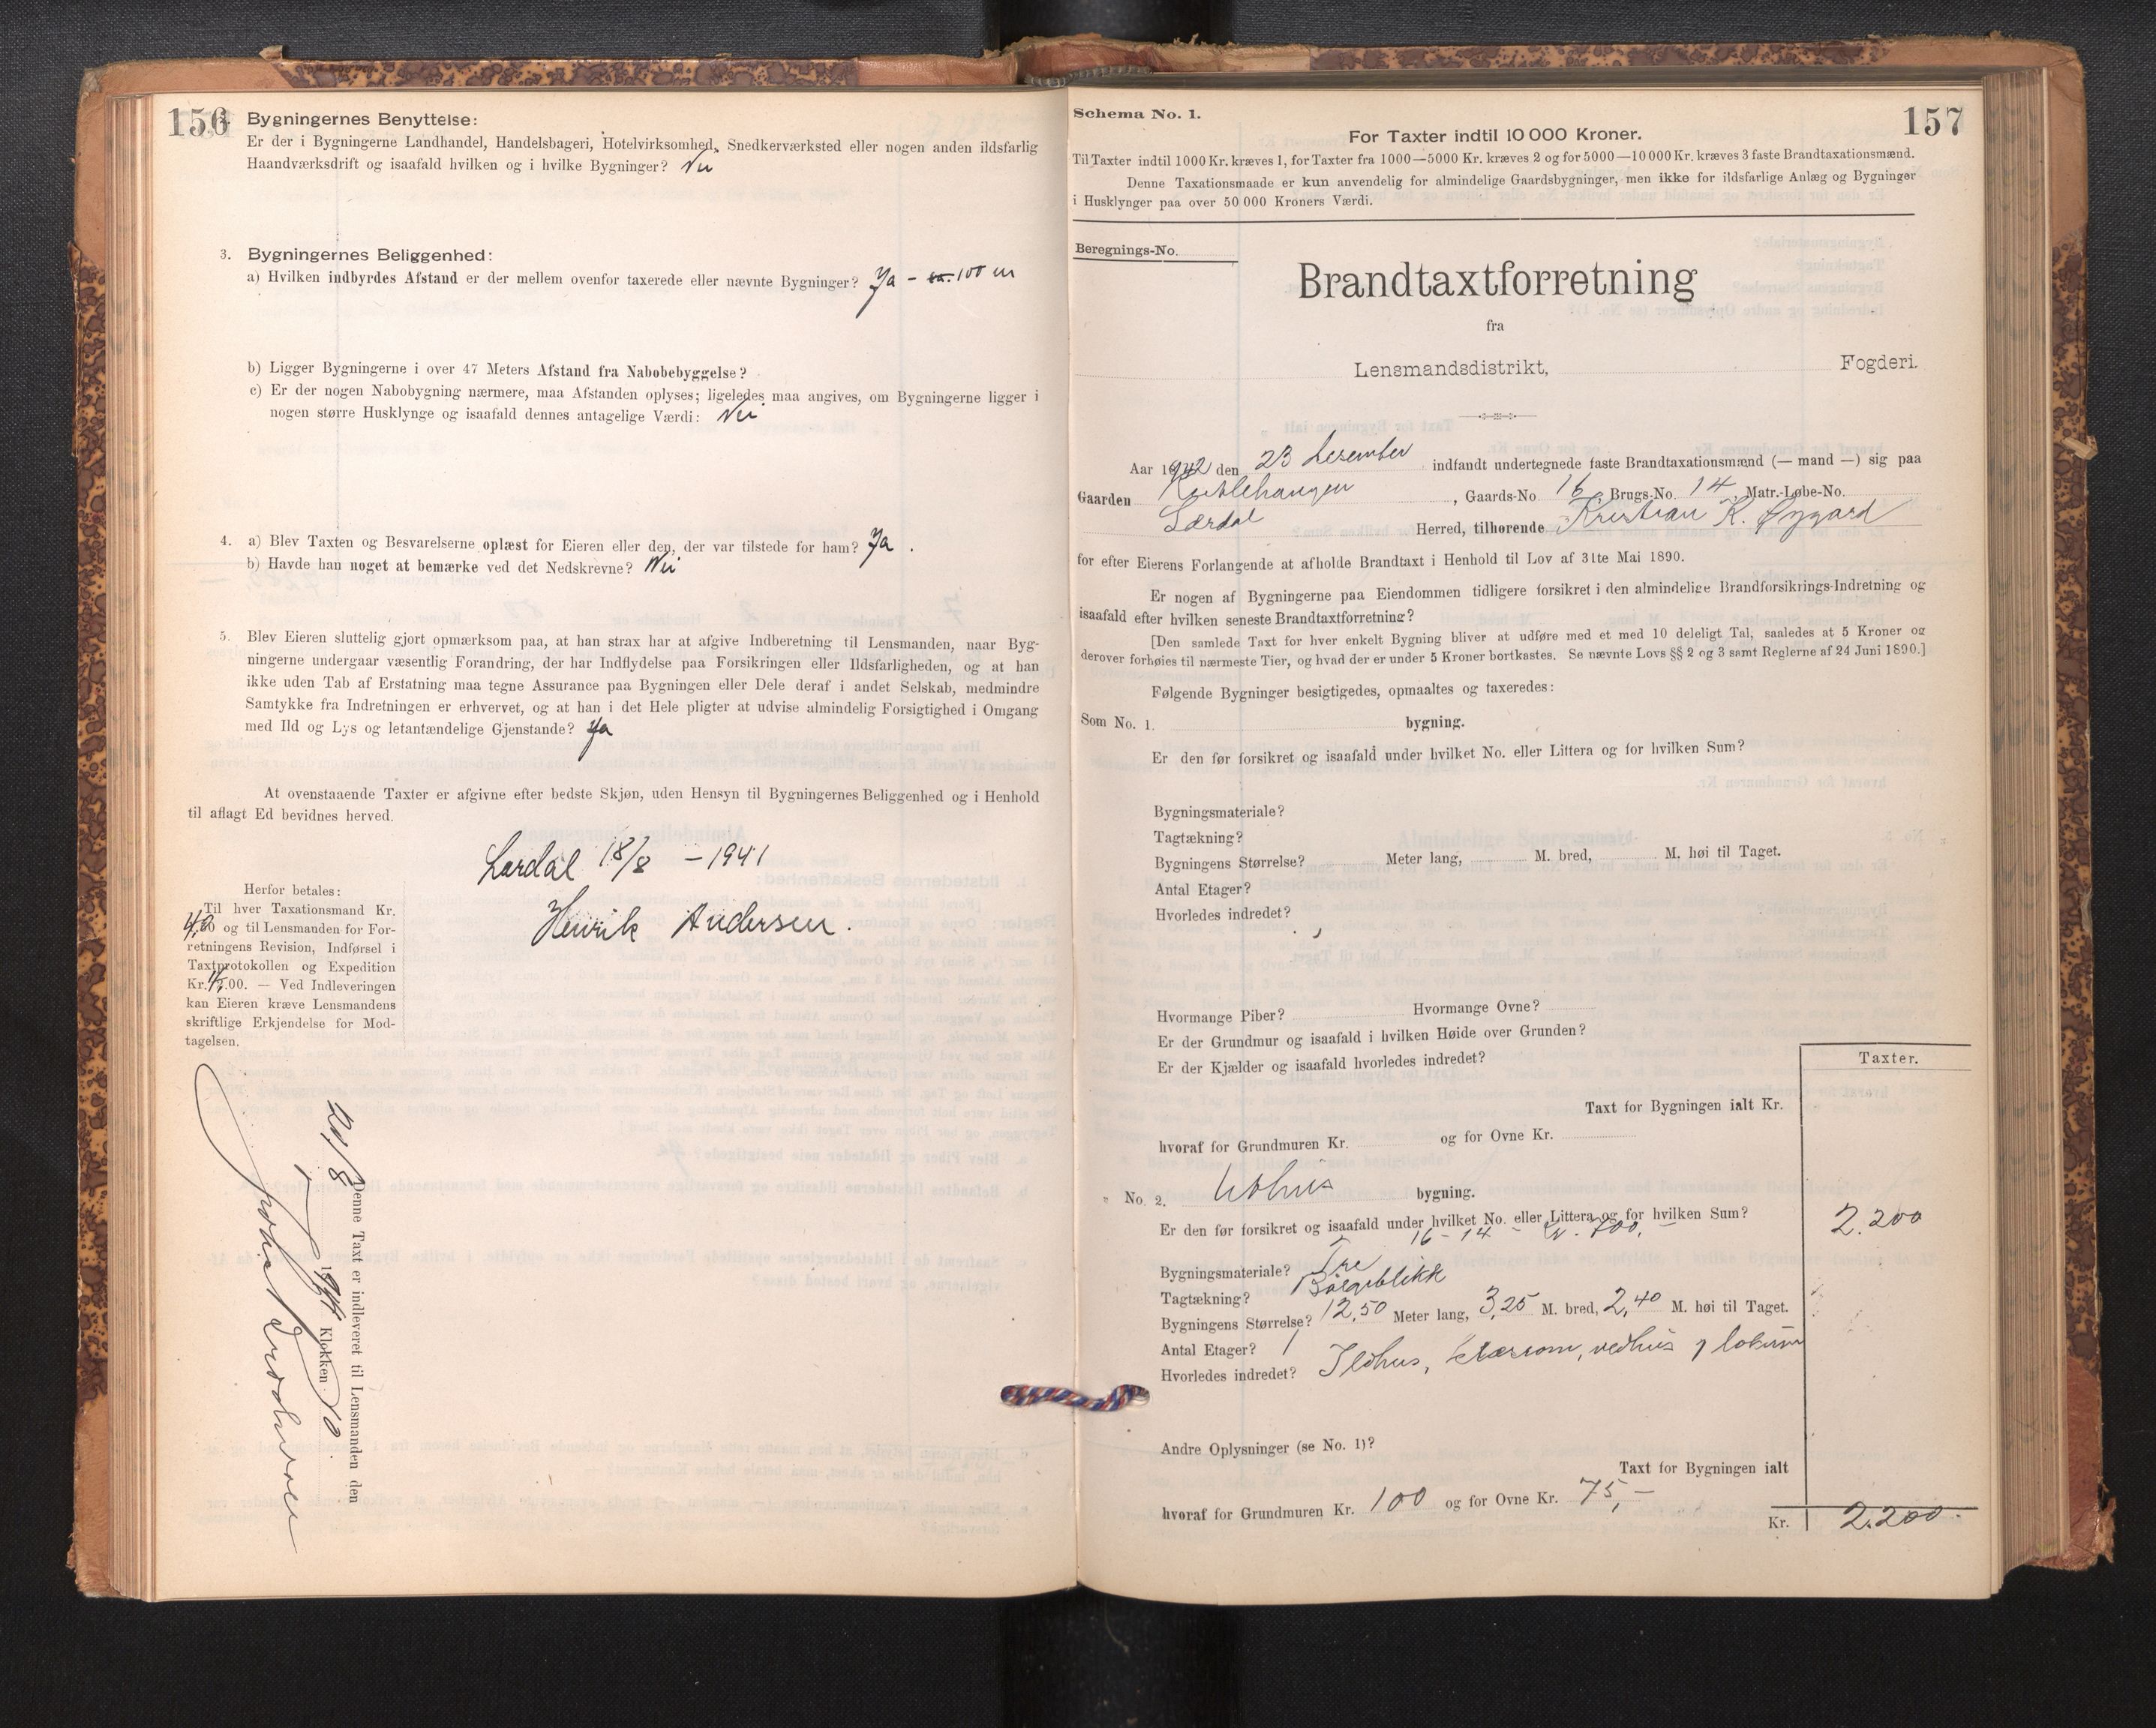 156
Bygningernes Benyttelse:
Er der i Bygningerne Landhandel, Handelsbageri, Hotelvirksomhed, Snedkerværksted eller nogen anden ildsfarlig
Haandværksdrift og isaafald hvilken og i hvilke Bygninger? Nei
3. Bygningernes Beliggenhed:
a) Hvilken indbyrdes Afstand er der mellem ovenfor taxerede eller nævnte Bygninger? Ja – ca. 100 m
b) Ligger Bygningerne i over 47 Meters Afstand fra Nabobebyggelse?
c) Er der nogen Nabobygning nærmere, maa Afstanden oplyses; ligeledes maa angives, om Bygningerne ligger i
nogen større Husklynge og isaafald dennes antagelige Værdi: Nei
4. a) Blev Taxten og Besvarelserne oplæst for Eieren eller den, der var tilstede for ham? Ja.
b) Havde han noget at bemærke ved det Nedskrevne? Nei
5. Blev Eieren sluttelig gjort opmærksom paa, at han strax har at afgive Indberetning til Lensmanden, naar Byg-
ningerne undergaar væsentlig Forandring, der har Indflydelse paa Forsikringen eller Ildsfarligheden, og at han
ikke uden Tab af Erstatning maa tegne Assurance paa Bygningen eller Dele deraf i andet Selskab, medmindre
Samtykke fra Indretningen er erhvervet, og at han i det Hele pligter at udvise almindelig Forsigtighed i Omgang
med Ild og Lys og letantændelige Gjenstande? Ja
At ovenstaaende Taxter er afgivne efter bedste Skjøn, uden Hensyn til Bygningernes Beliggenhed og i Henhold
til aflagt Ed bevidnes herved.
Lærdal 18/8 – 1941
Henrik Andersen.
Herfor betales:
Til hver Taxationsmand Kr.
4,00 og til Lensmanden for For-
retningens Revision, Indførsel i
Taxtprotokollen og Expedition
Kr. 4.00. — Ved Indleveringen
kan Eieren kræve Lensmandens
skriftlige Erkjendelse for Mod-
tagelsen.
Denne Taxt er indleveret til Lensmanden den
21/8 1941 Klokken 10.
157
Schema No. 1.
For Taxter indtil 10 000 Kroner.
Til Taxter indtil 1000 Kr. kræves 1, for Taxter fra 1000—5000 Kr. kræves 2 og for 5000—10 000 Kr. kræves 3 faste Brandtaxationsmænd.
Denne Taxationsmaade er kun anvendelig for almindelige Gaardsbygninger, men ikke for ildsfarlige Anlæg og Bygninger
i Husklynger paa over 50 000 Kroners Værdi.
Beregnings-No.
Brandtaxtforretning
fra
Lensmandsdistrikt, Fogderi.
Aar 1942 den 23 Desember indfandt undertegnede faste Brandtaxationsmænd (— mand —) sig paa
Gaarden , Gaards-No 16, Brugs-No. 14 Matr.-Løbe-No.
Lærdal Herred, tilhørende Kristian K. Øygard
for efter Eierens Forlangende at afholde Brandtaxt i Henhold til Lov af 31te Mai 1890.
Er nogen af Bygningerne paa Eiendommen tidligere forsikret i den almindelige Brandforsikrings-Indretning og
isaafald efter hvilken seneste Brandtaxtforretning?
[Den samlede Taxt for hver enkelt Bygning bliver at udføre med et med 10 deleligt Tal, saaledes at 5 Kroner og
derover forhøies til nærmeste Tier, og hvad der er under 5 Kroner bortkastes. Se nævnte Lovs §§ 2 og 3 samt Reglerne af 24 Juni 1890.]
Følgende Bygninger besigtigedes, opmaaltes og taxeredes:
Som No. 1. bygning.
Er den før forsikret og isaafald under hvilket No. eller Littera og for hvilken Sum?
Bygningsmateriale?
Tagtækning?
Bygningens Størrelse? Meter lang, M. bred, M. høi til Taget.
Antal Etager?
Hvorledes indredet?
Hvormange Piber? Hvormange Ovne?
Er der Grundmur og isaafald i hvilken Høide over Grunden?
Er der Kjælder og isaafald hvorledes indredet?
Taxter.
Taxt for Bygningen ialt Kr.
hvoraf for Grundmuren Kr. og for Ovne Kr.
" No. 2. Uthus bygning.
Er den før forsikret og isaafald under hvilket No. eller Littera og for hvilken Sum? 2.200
16 – 14 – kr. 700,–
Bygningsmateriale? Tre
Tagtækning? Bølgeblikk
Bygningens Størrelse? 12,50 Meter lang, 3,25 M. bred, 2,40 M. høi til Taget.
Antal Etager? 1
Hvorledes indredet? Ildhus, vedhus
Andre Oplysninger (se No. 1)?
Taxt for Bygningen ialt
hvoraf for Grundmuren Kr. 100 og for Ovne Kr. 75,–
Kr. 2.200.